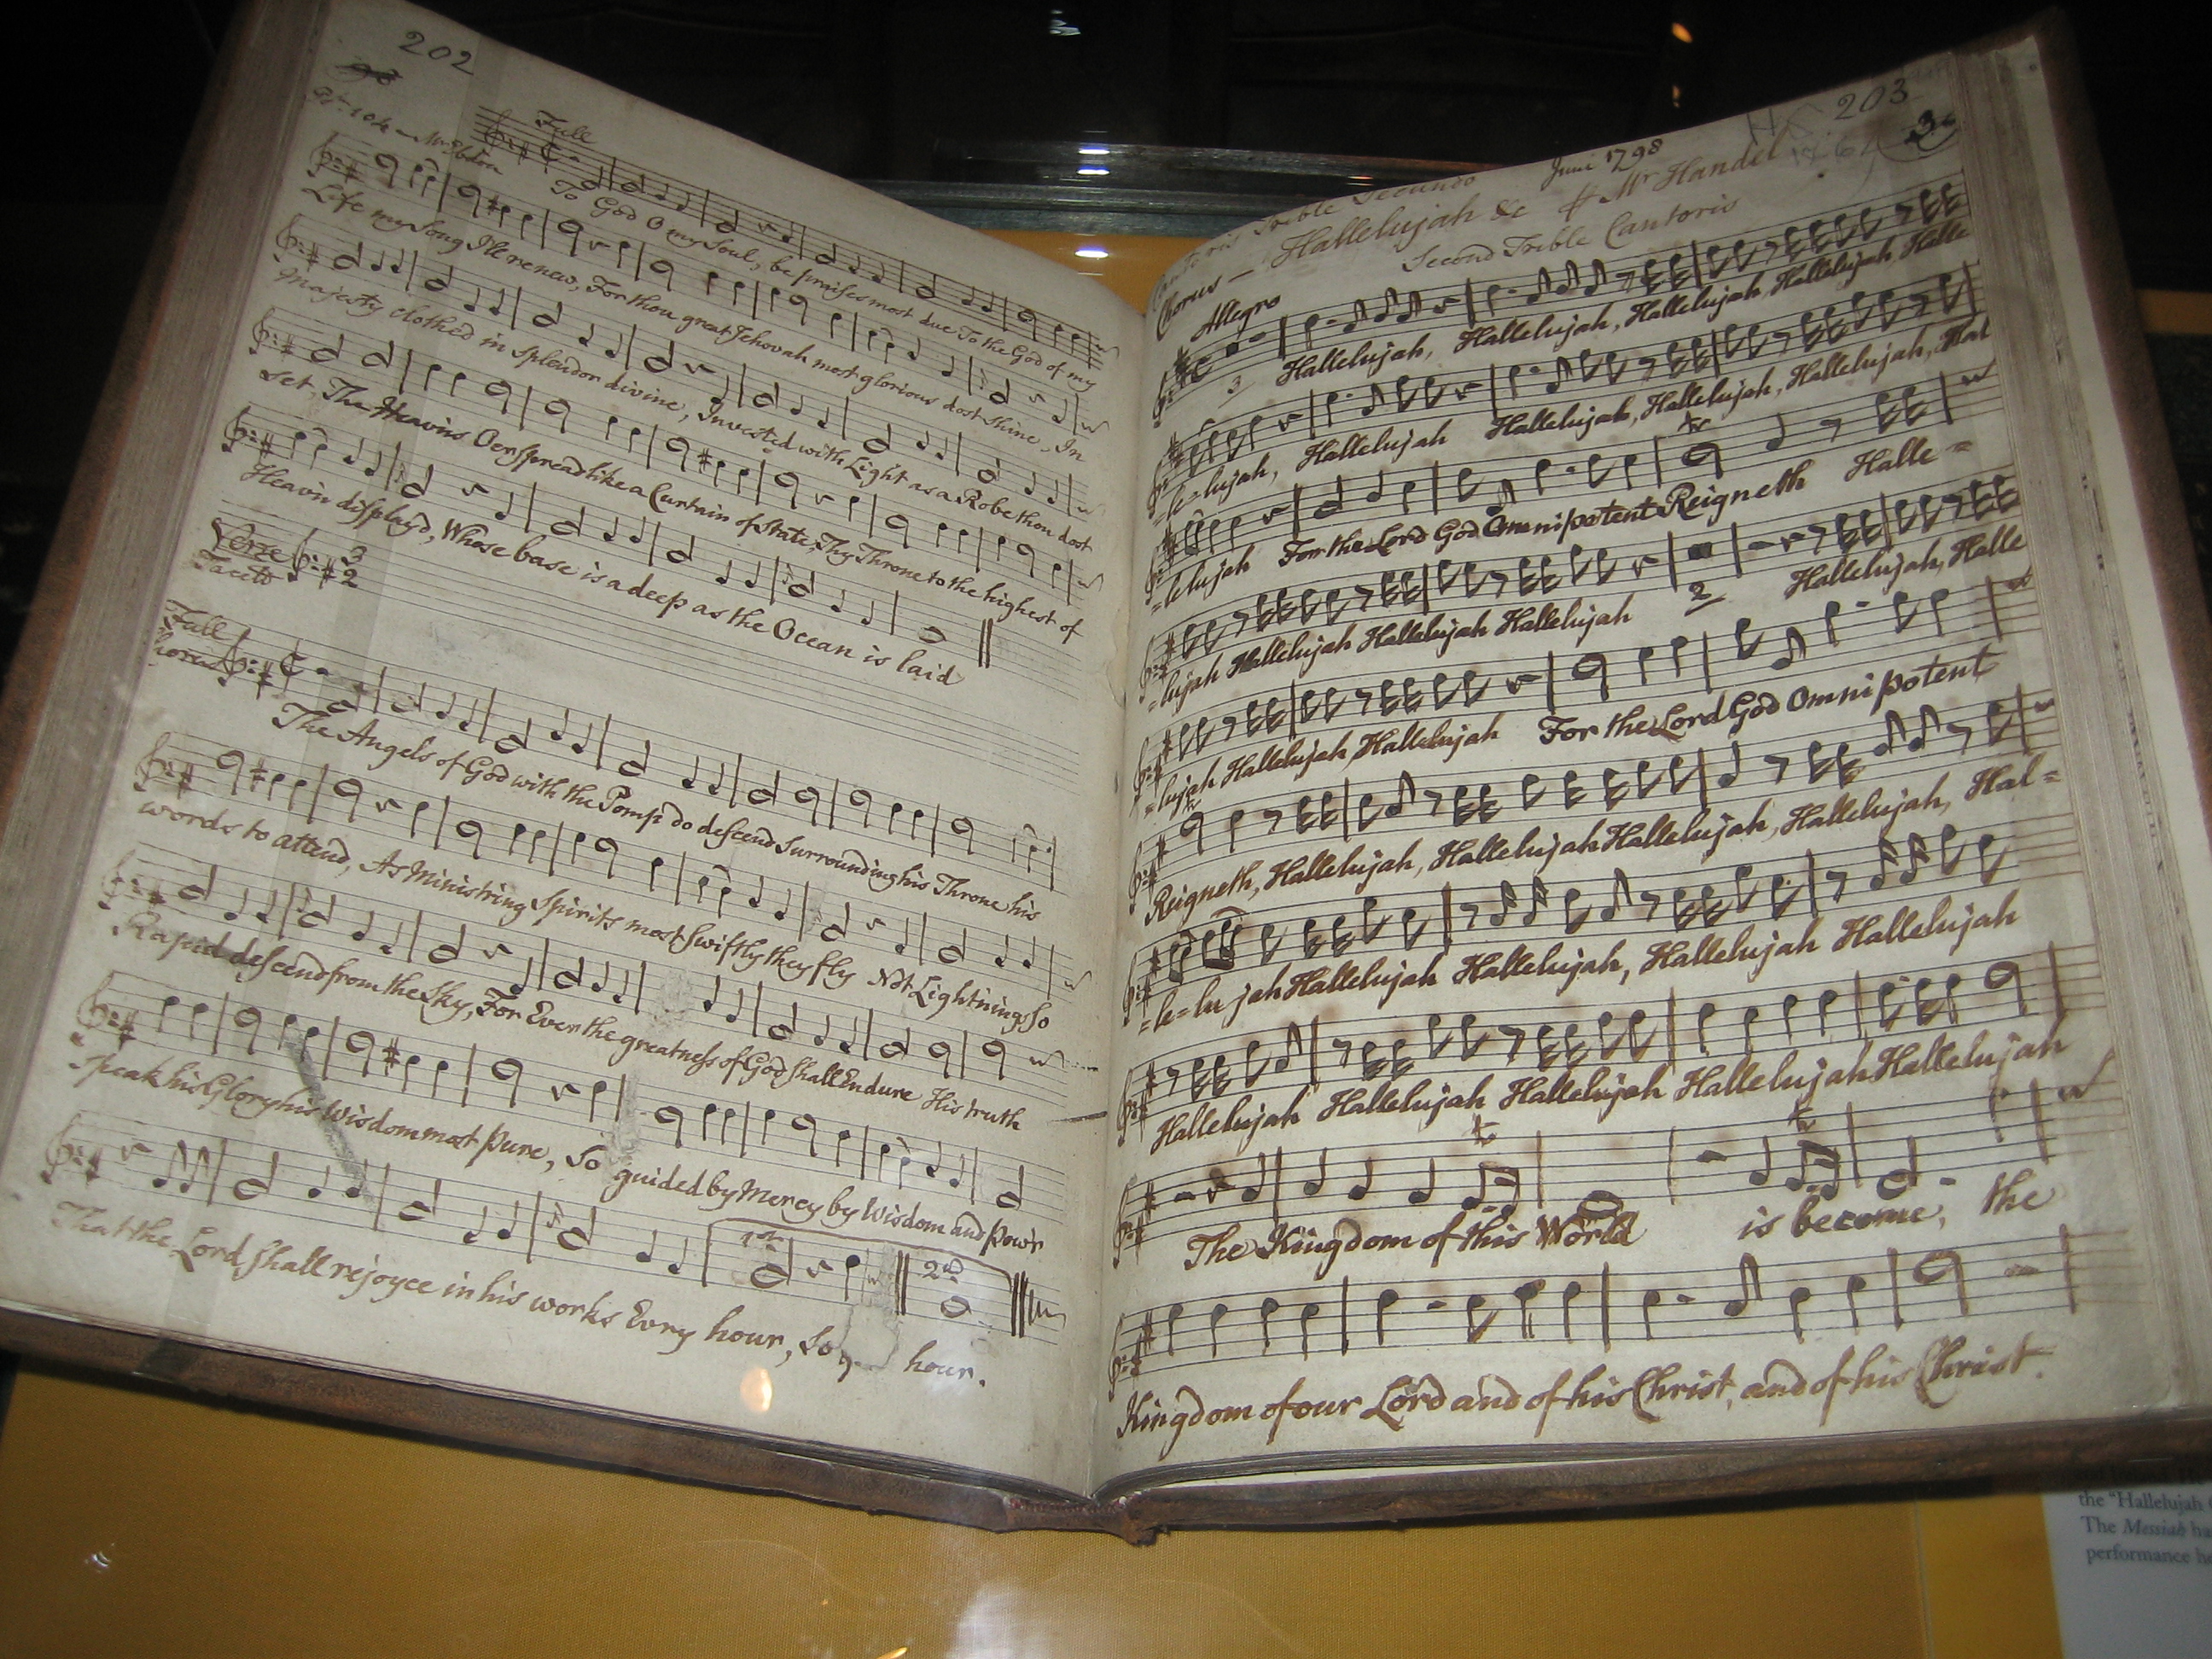 202
98
Ps: 104 - Mr Ebdon
Full
To God O my Soul, be praises most due To the God of my
Life my Song I'll renew, For thou great Jehovah most glorious dost shine, In
Majesty clothed in splendor divine, Invested with Light as a Robe thou dost
set, The Heavins Oerspread like a Curtain of State, Thy Throne to the highest of
Heavin display'd, Whose base is as deep as the Ocean is laid
Verse 3 2
Tacett
Full
Chorus
The Angels of God with the Pomp do descend Surrounding his Throne his
words to attend, As Ministring Spirits most Swiftly they fly Not Lightnings so
Rapid descend from the Sky, For Ever the greatness of God shall Endure His truth
speak his Glory his Wisdom most pure, So guided by Mercy by Wisdom and pow'r
That the Lord shall rejoyce in his works Evry hour, So
1st
2nd
hour.
203
Juni 1798
3
Treble Secundo
Chorus - Hallelujah &c Mr Handel
Second Treble Cantoris
Allegro
3 Hallelujah, Hallelujah, Hallelujah, Hallelujah Halle
=le=lujah, Hallelujah Hallelujah, Hallelujah, Hallelujah, Hal
=lelujah For the Lord God Omnipotent Reigneth Halle=
=lujah Hallelujah Hallelujah Hallelujah 2 Hallelujah, Halle
=lujah Hallelujah, Hallelujah For the Lord God Omnipotent
Reigneth, Hallelujah, Hallelujah Hallelujah, Hallelujah, Hal=
=le=lu jah Hallelujah Hallelujah, Hallelujah Hallelujah
Hallelujah Hallelujah Hallelujah Hallelujah Hallelujah
The Kingdom of this World is become, the
Kingdom of our Lord and of his Christ, and of his Christ.
the "Hallelujah
The Messiah ha
performance he